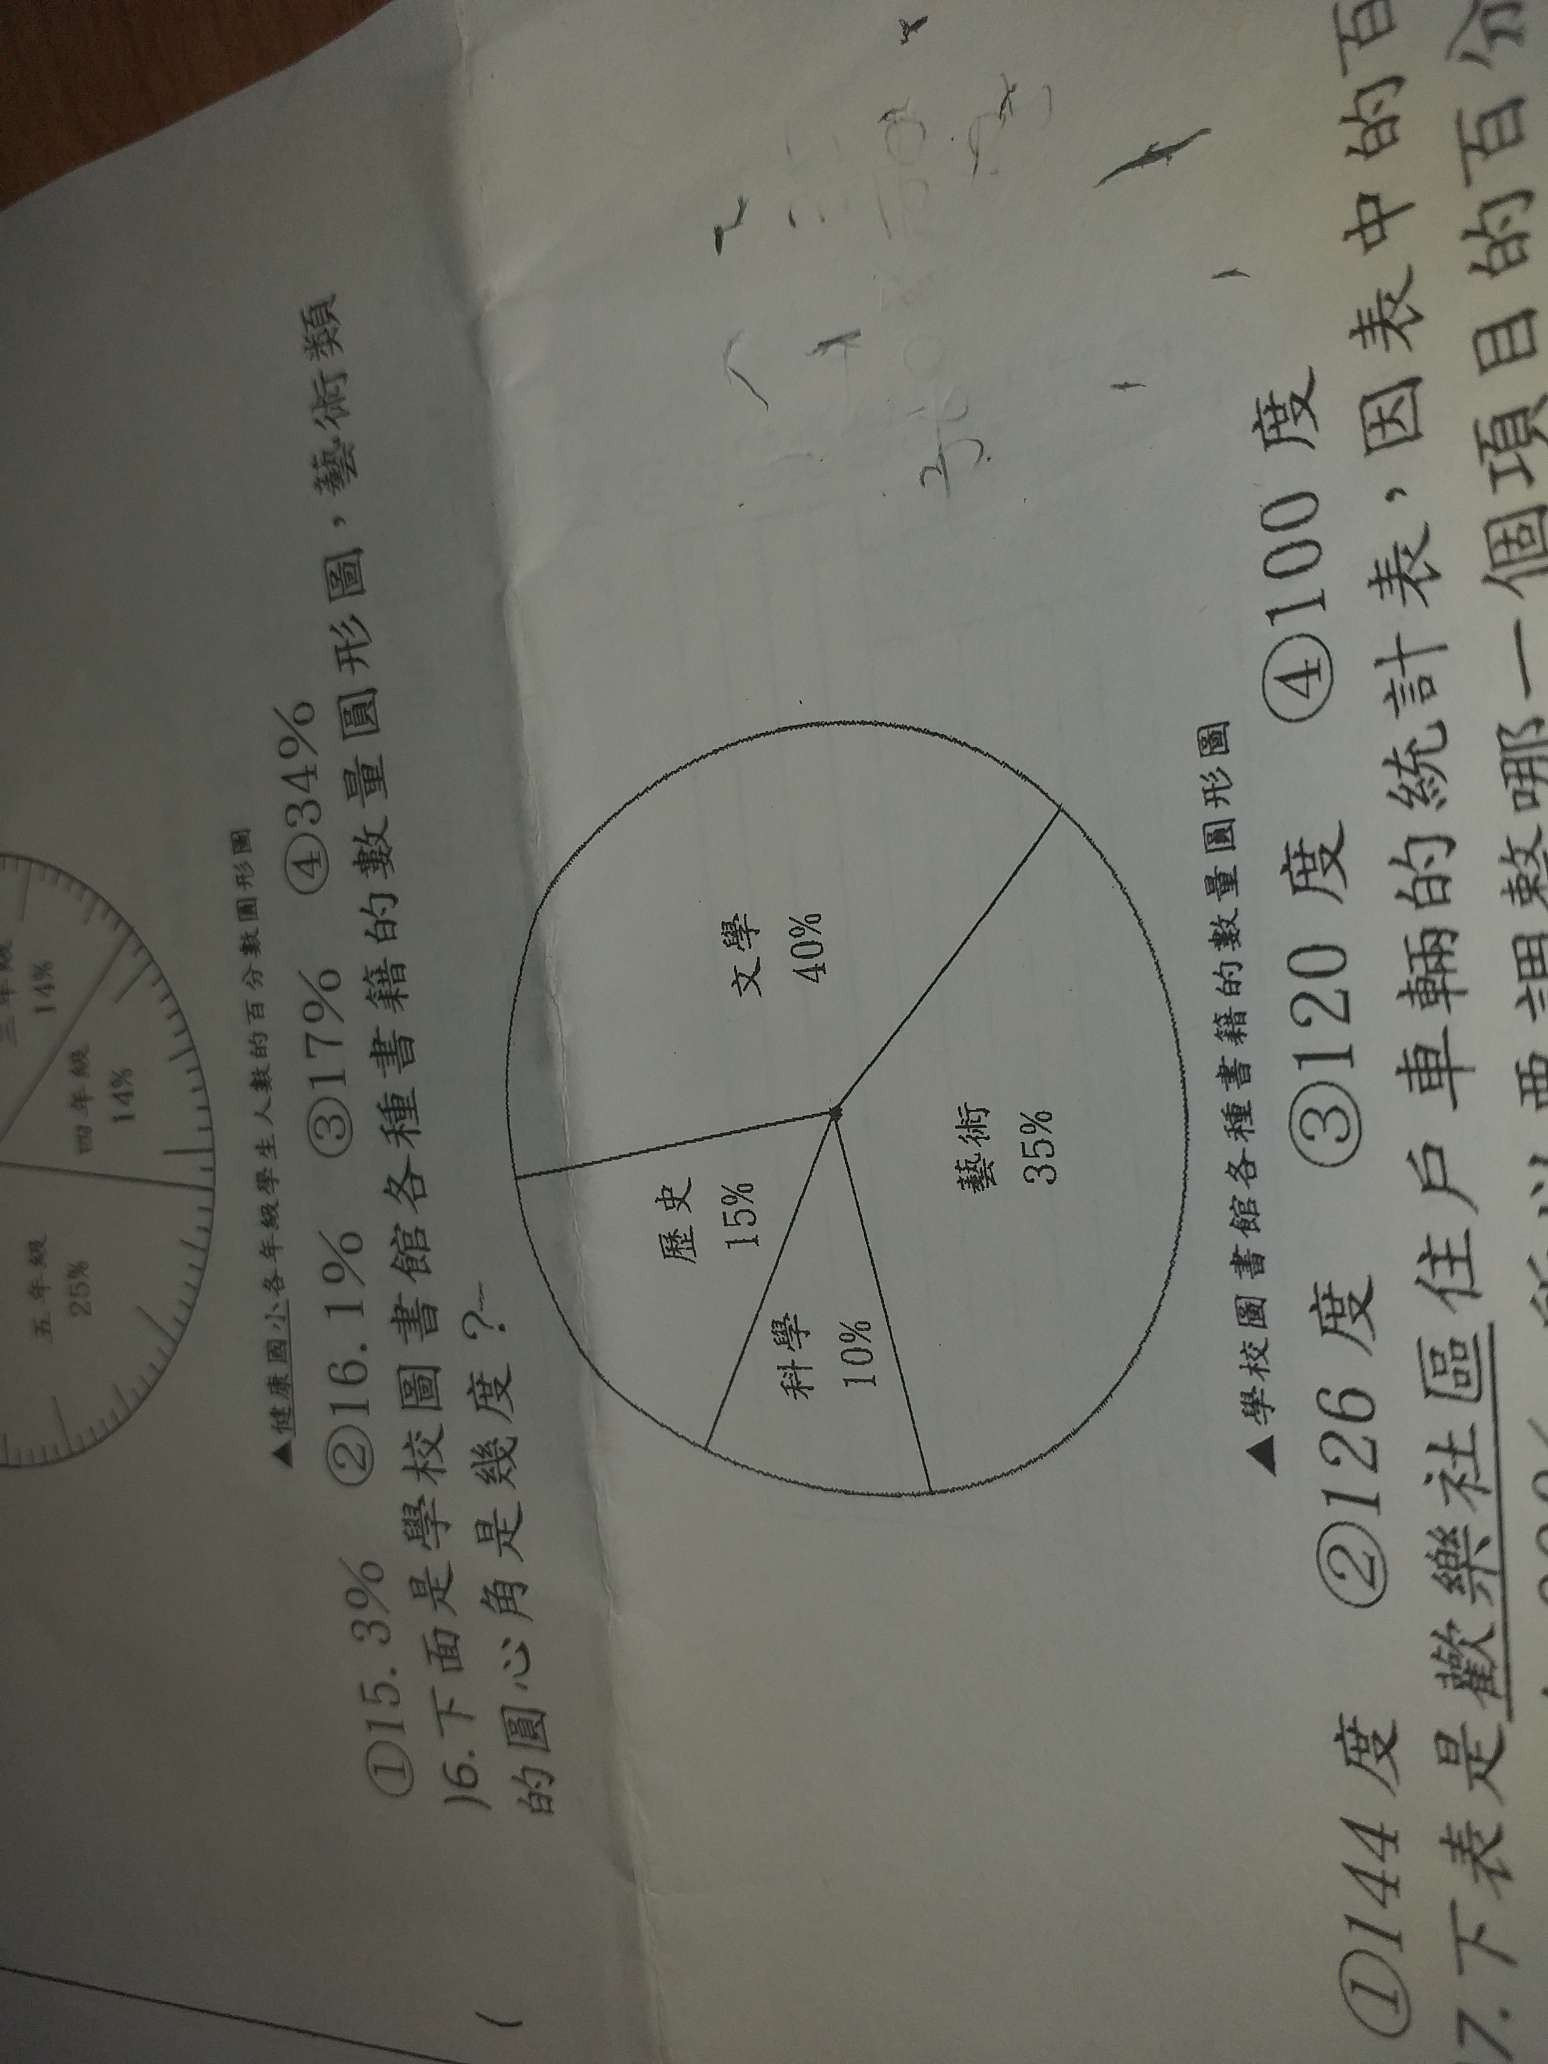 三年級
14%
四年級
14%
五年級
25%
▲健康國小各年級學生人數的百分數圓形圖
①15.3% ②16.1% ③17% ④34%
)6.下面是學校圖書館各種書籍的數量圓形圖，藝術類
的圓心角是幾度？
文學
40%
歷史
15%
科學
10%
藝術
35%
▲學校圖書館各種書籍的數量圓形圖
①144度 ②126度 ③120度 ④100度
7.下表是歡樂社區住戶車輛的統計表，因表中的百
個項目的百分